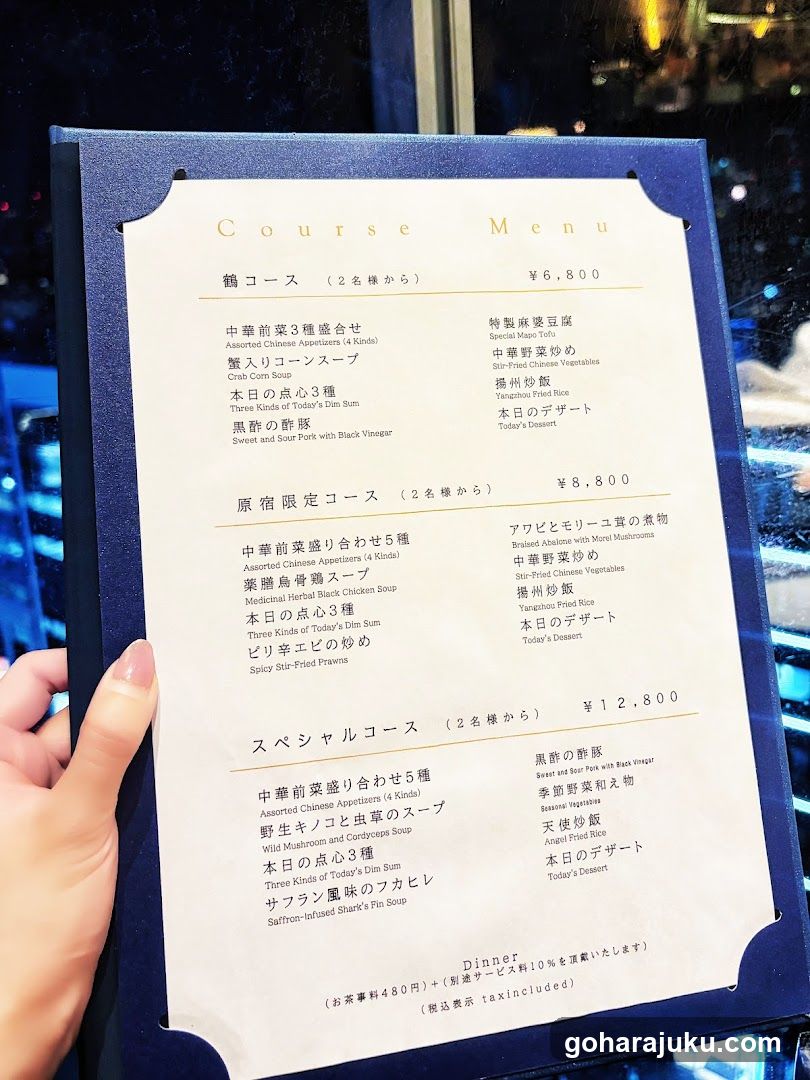 Course Menu
鶴コース （２名様から） ￥６,８００
中華前菜３種盛合せ
Assorted Chinese Appetizers (4 Kinds)
蟹入りコーンスープ
Crab Corn Soup
本日の点心３種
Three Kinds of Today's Dim Sum
黒酢の酢豚
Sweet and Sour Pork with Black Vinegar
特製麻婆豆腐
Special Mapo Tofu
中華野菜炒め
Stir-Fried Chinese Vegetables
揚州炒飯
Yangzhou Fried Rice
本日のデザート
Today's Dessert
原宿限定コース （２名様から） ￥８,８００
中華前菜盛り合わせ５種
Assorted Chinese Appetizers (4 Kinds)
薬膳烏骨鶏スープ
Medicinal Herbal Black Chicken Soup
本日の点心３種
Three Kinds of Today's Dim Sum
ピリ辛エビの炒め
Spicy Stir-Fried Prawns
アワビとモリーユ茸の煮物
Braised Abalone with Morel Mushrooms
中華野菜炒め
Stir-Fried Chinese Vegetables
揚州炒飯
Yangzhou Fried Rice
本日のデザート
Today's Dessert
スペシャルコース （２名様から） ￥１２,８００
中華前菜盛り合わせ５種
Assorted Chinese Appetizers (4 Kinds)
野生キノコと虫草のスープ
Wild Mushroom and Cordyceps Soup
本日の点心３種
Three Kinds of Today's Dim Sum
サフラン風味のフカヒレ
Saffron-Infused Shark's Fin Soup
黒酢の酢豚
Sweet and Sour Pork with Black Vinegar
季節野菜和え物
Seasonal Vegetables
天使炒飯
Angel Fried Rice
本日のデザート
Today's Dessert
Dinner
（お茶事料４８０円）＋（別途サービス料１０％を頂戴いたします）
（税込表示 taxincluded）
goharajuku.com